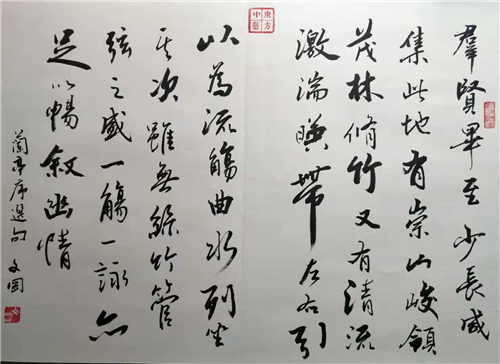 東方
中藝
羣賢畢至少長咸
集此地有崇山峻領
茂林脩竹又有清流
激湍暎帶左右引
以為流觴曲水列坐
其次雖無絲竹管
弦之盛一觴一詠亦
足以暢敘幽情
蘭亭序選句 文